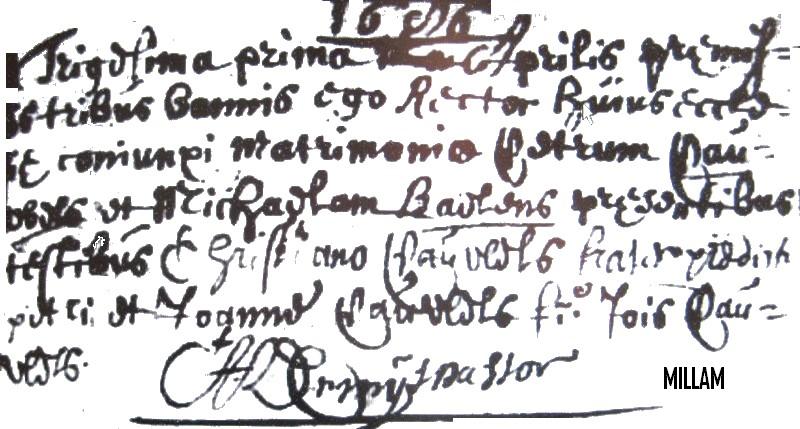 1686
Trigesima prima Aprilis præmis=
sis tribus bannis ego Rector huius eccle=
siæ coniunxi matrimonio Petrum Pau=
vels et Michaelem Baelens præsentibus
testibus Christiano Pauvels frater predicti
petri et Joanne Pauwels fi: Jois Pau=
vels.
pastor
MILLAM